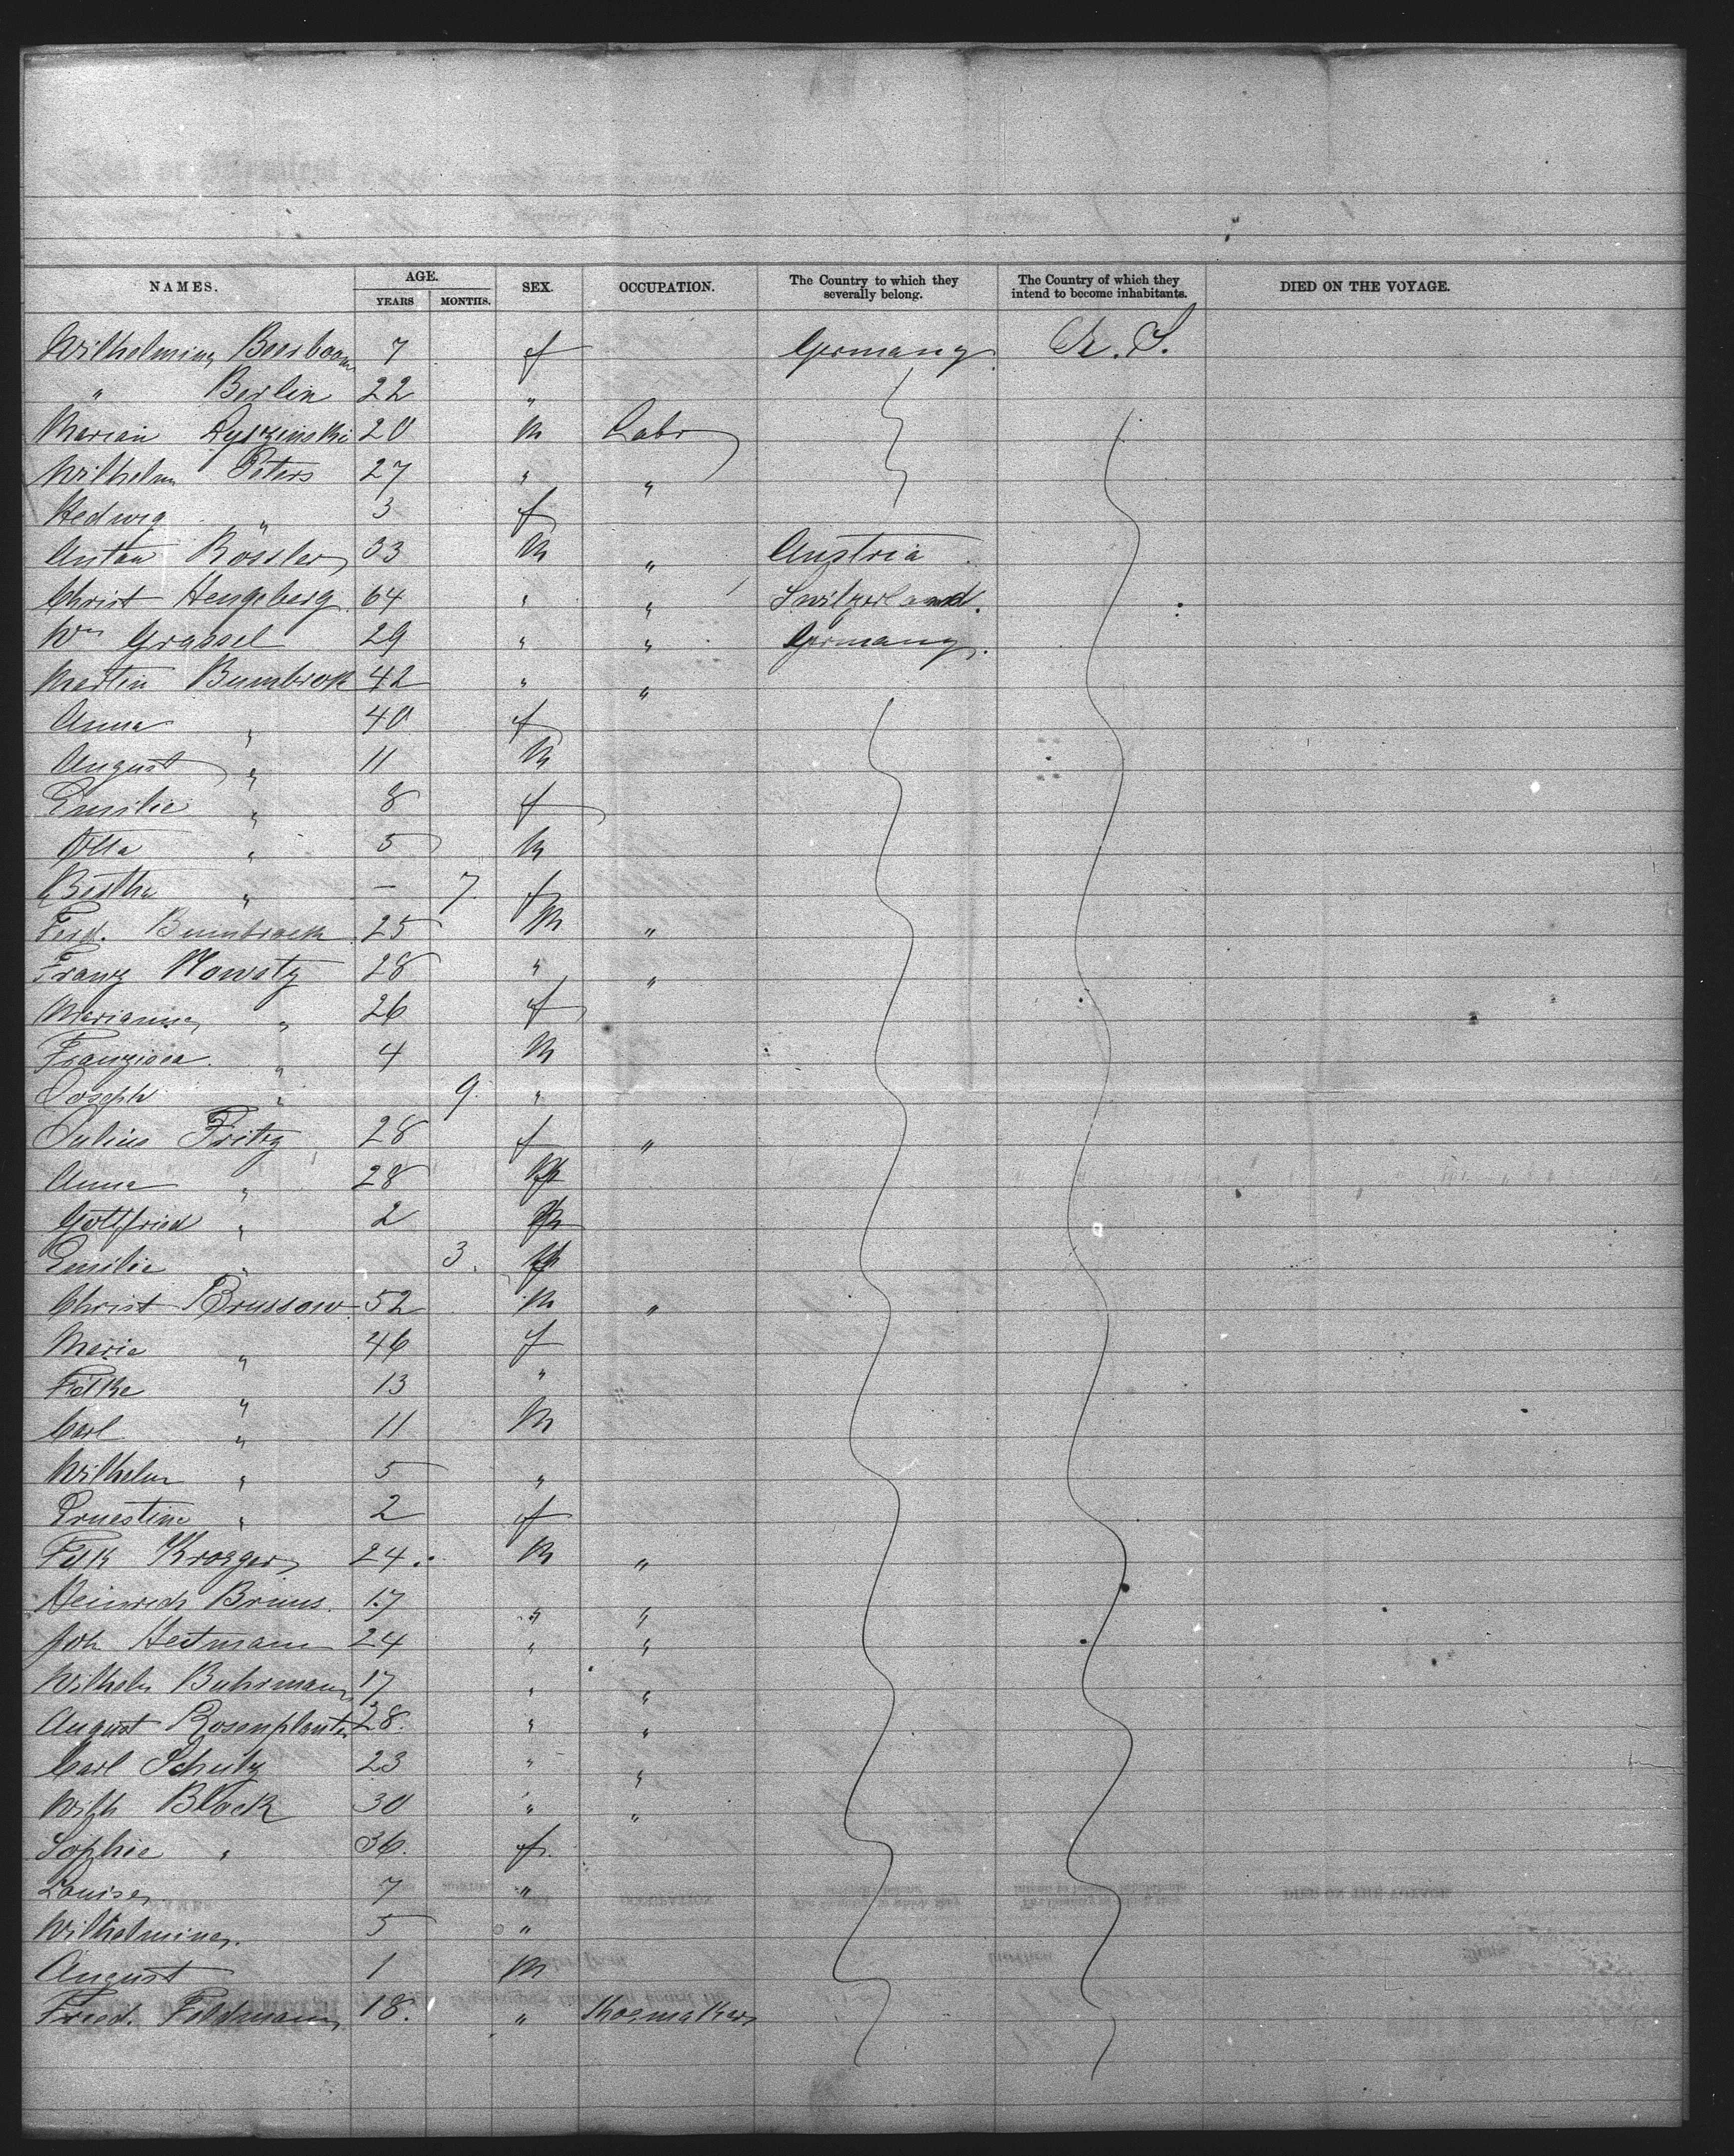 NAMES. AGE. YEARS MONTHS. SEX. OCCUPATION. The Country to which they severally belong. The Country of which they intend to become inhabitants. DIED ON THE VOYAGE.
Wilhelmina Beerboom 7 f Germany
" Berlin 22 "
Marian 20 m Labr
Wilhelm Peters 27 " "
Hedwig " 3 f
Anton Rossler 33 m " Austria
Christ Hengeberg 64 " " Switzerland.
Wm Grassel 29 " " Germany.
Martin Bumbrok 42 " "
Anna " 40 f
August " 11 m
Emilie " 8 f
Otto " 5 m
Bertha " – 7. f
Ferd. Bumbrock 25 m "
Franz Nowoty 28 " "
Marianna " 26 f
Franzisca. " 4 m
Joseph " 9. "
Julius Fritz 28 f "
Anna " 28
Gottfried " 2
Emilie " 3.
Christ Brussow 52 m "
Marie " 46 f
Fdke " 13 "
Carl " 11 m
Wilhelm " 5 "
Ernestine " 2 f
Fdk Krogger 24. m "
Heinrich Bruns. 17 " "
Joh Heitmann 24 " "
Wilhelm Buhrmann 17 " "
August Rosenplanter 28. " "
Carl Schulz 23 " "
Wilh Block 30 " "
Sophie " 36. f.
Louise 7 "
Wilhelmine. 5 "
August 1 m
Fried. Feldmann. 18. " Shoemaker